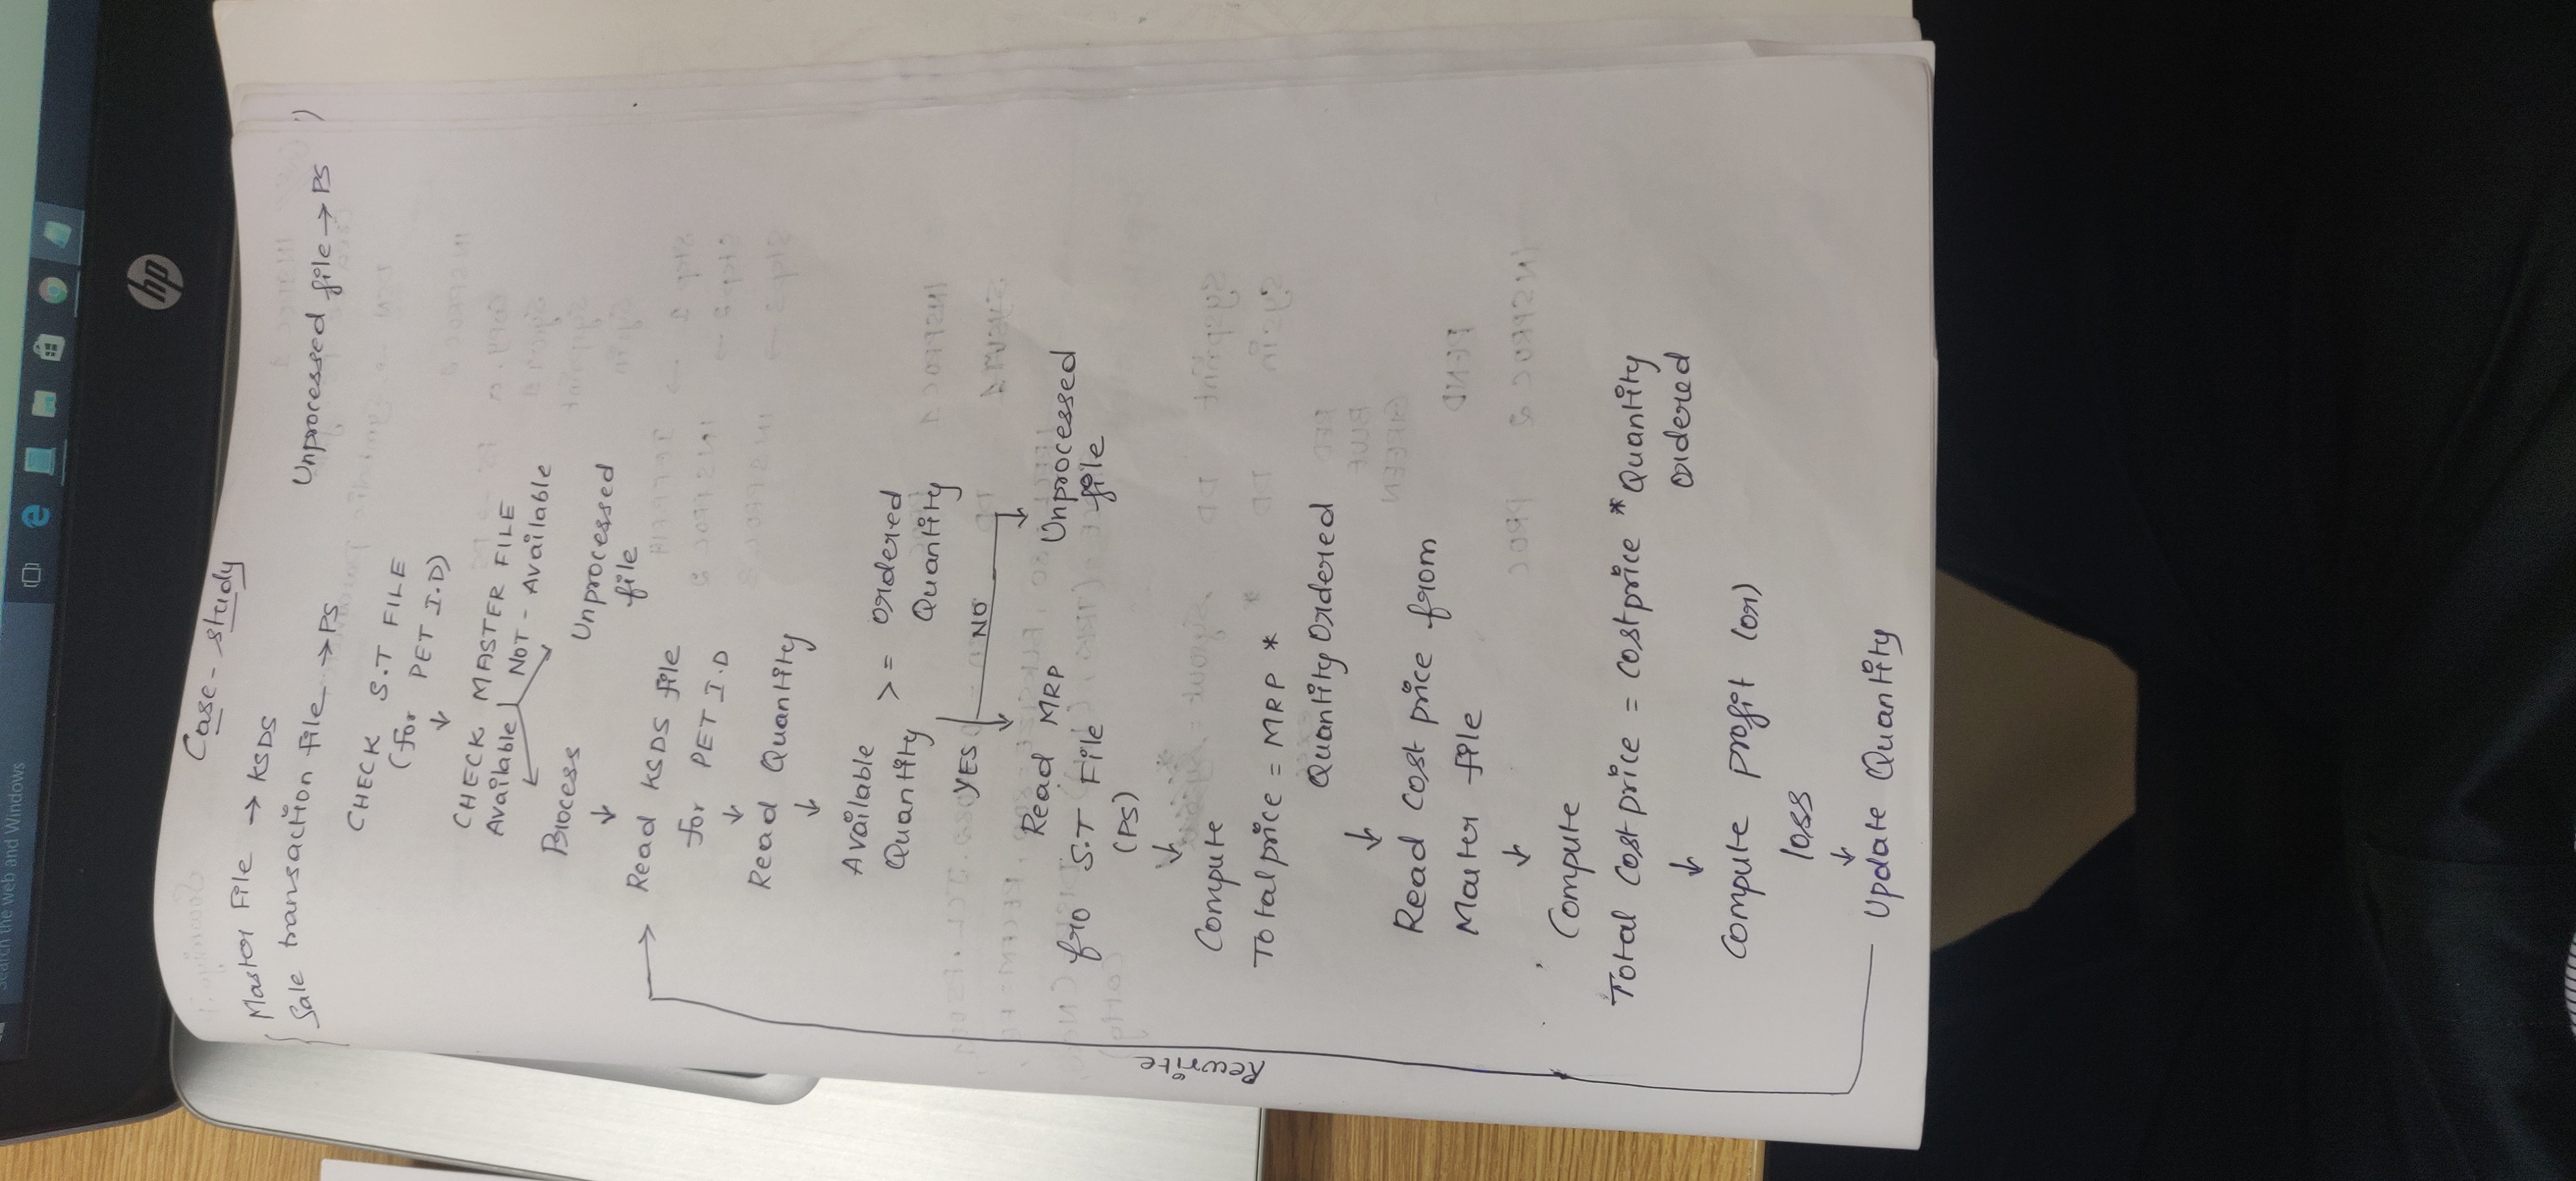 Search the web and Windows
hp
Case - study
Master File → KSDS
Sale transaction file → PS
Unprocessed file → PS
CHECK S.T FILE
(for PET I.D)
↓
CHECK MASTER FILE
Available NOT - Available
Process
Unprocessed
file
↓
Read KSDS file
for PET I.D
↓
Read Quantity
↓
Available
Quantity >= ordered
Quantity
YES NO
Read MRP
fro S.T File
(PS)
Unprocessed
file
↓
Compute
Total price = MRP *
Quantity Ordered
↓
Read cost price from
Master file
↓
Compute
Total cost price = cost price * Quantity
ordered
↓
Compute profit (or)
loss
↓
Update Quantity
Rewrite